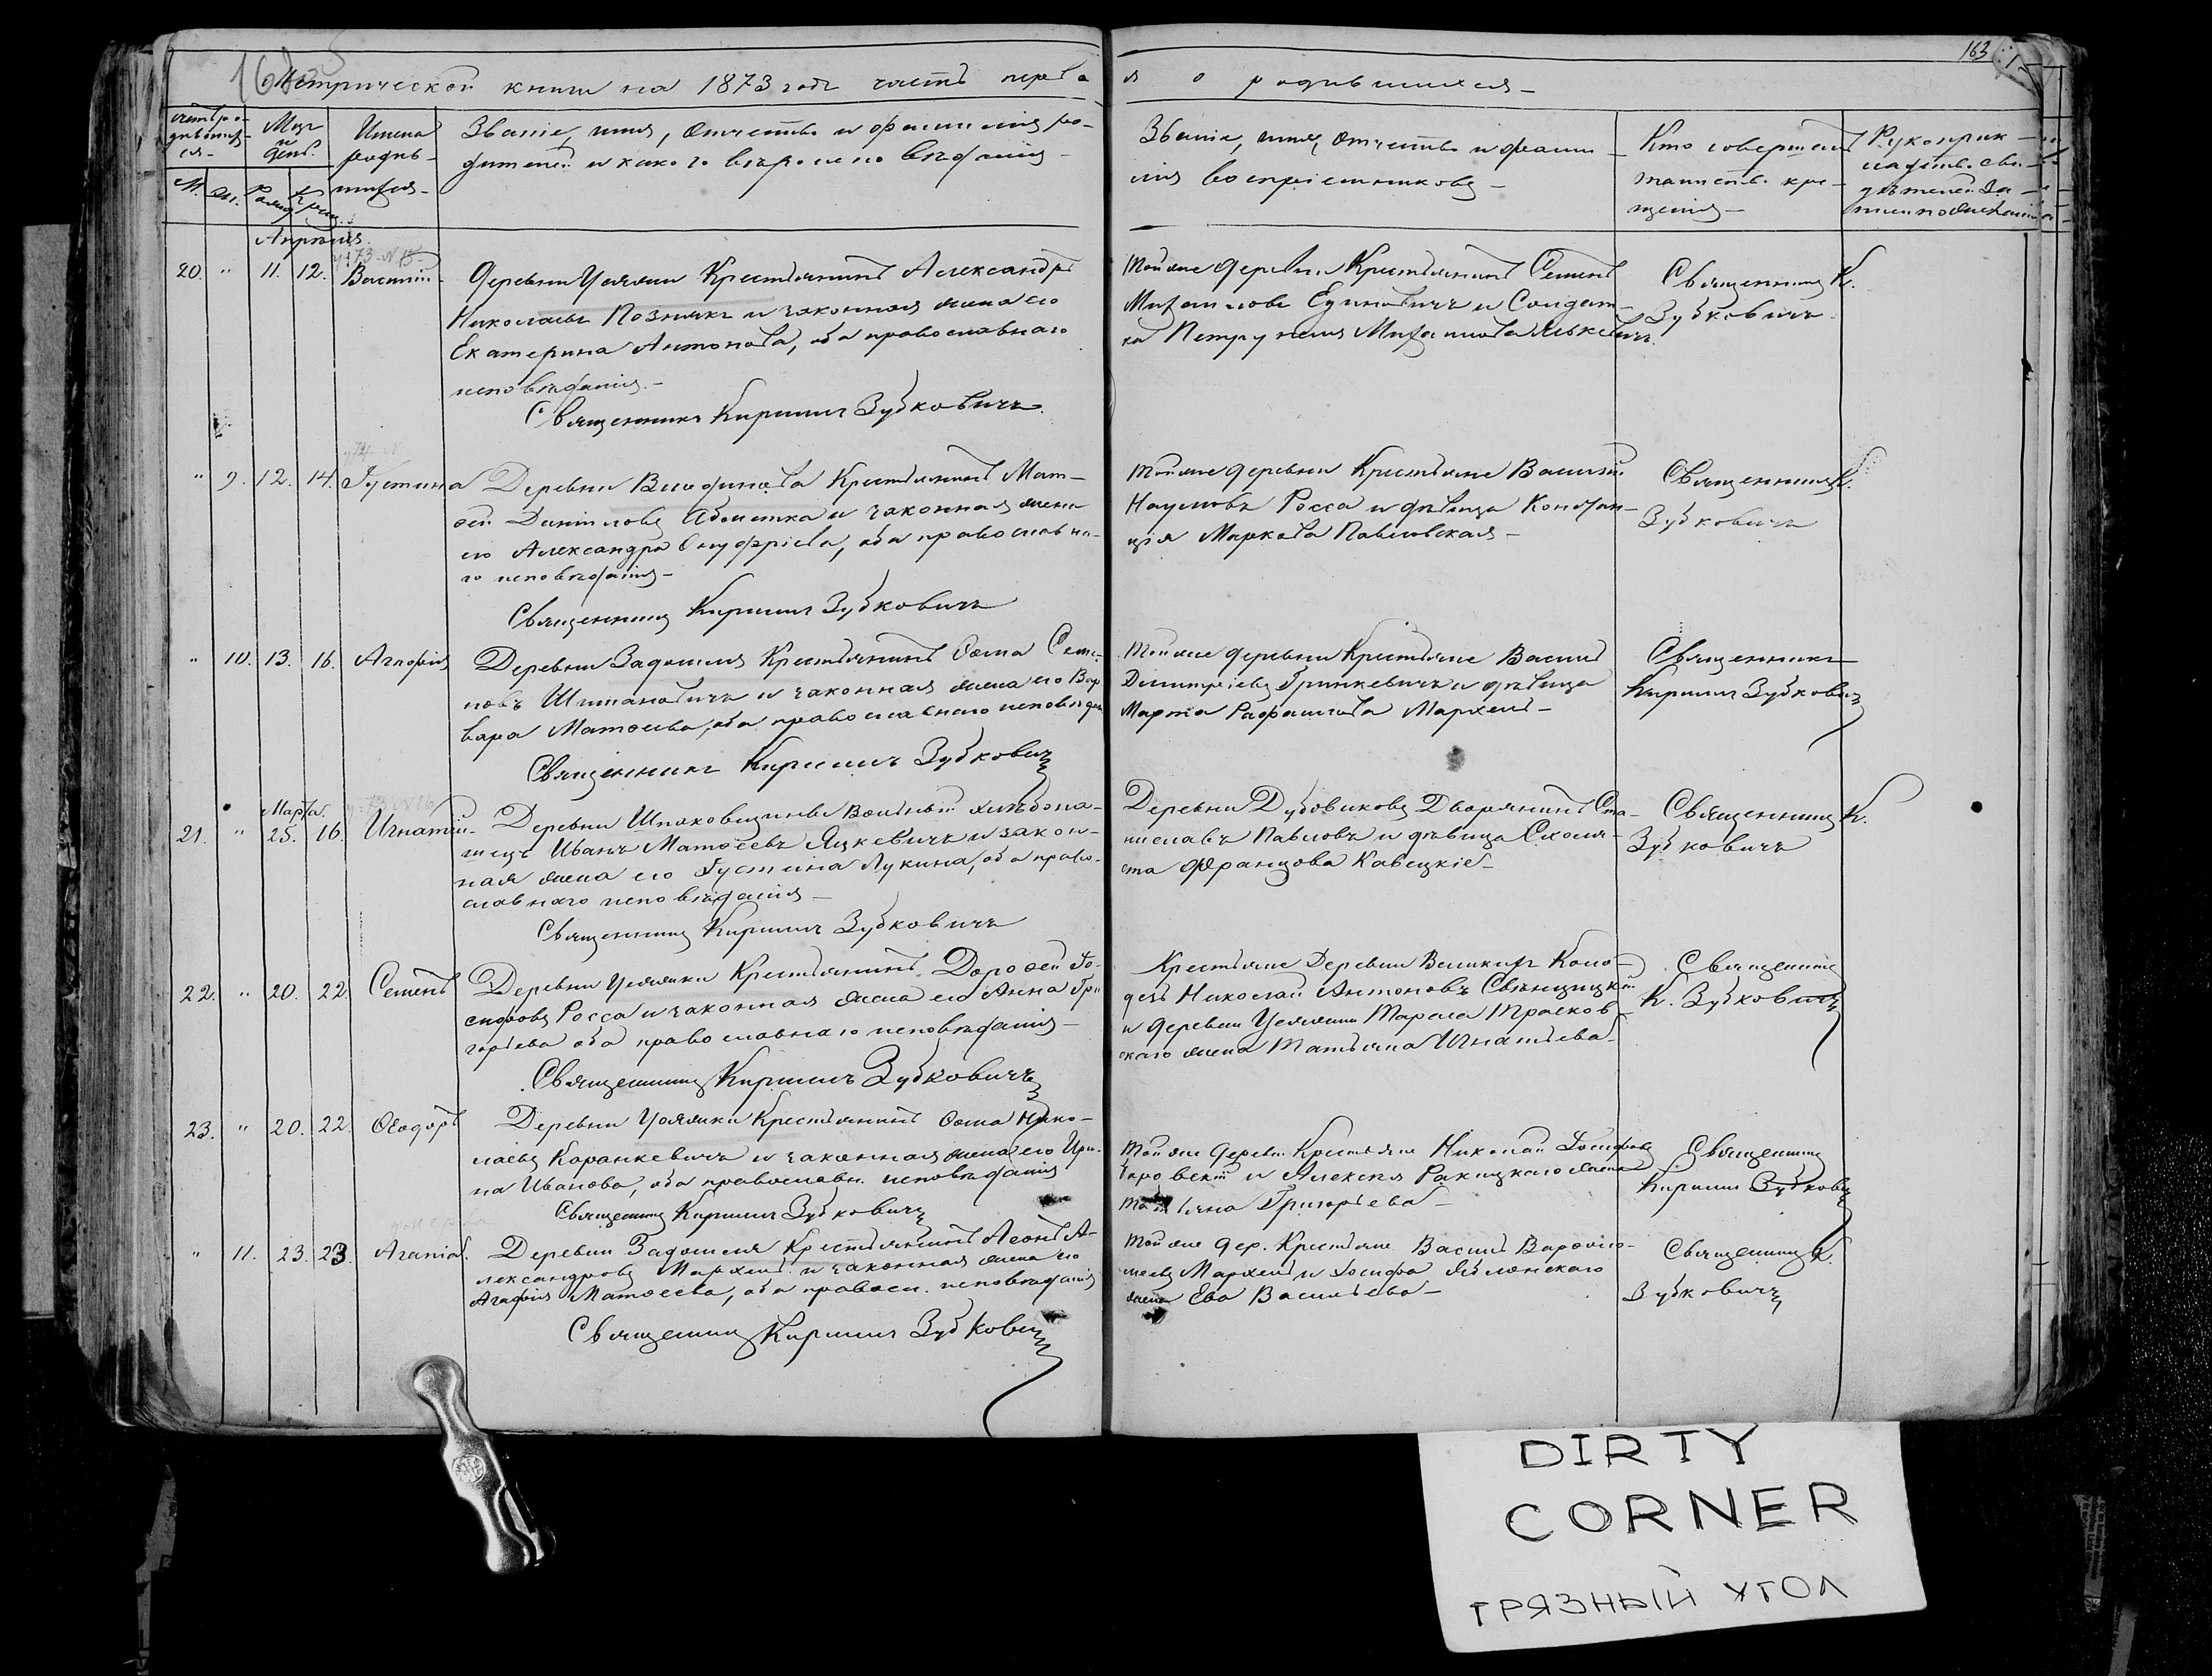 163
Метрической книги на 1873 годъ часть перва
я о родившихся
Счетъ ро-
дивших-
ся
Мсцъ
и
день.
Имена
родив-
шихся
Званіе, имя, отчество и фамилія ро-
дителей и какого вѣроисповѣданія
М. Ж. Рожд. Крещ.
Званіе, имя, отчество и фами-
лія воспріемниковъ
Кто совершалъ
таинство кре-
щенія
Рукоприк-
ладство сви-
дѣтелей за-
писи по желанію
Апрѣля
20. " 11. 12. Василій Деревни Укляки Крестьянинъ Александръ
Николаевъ Познякъ и законная жена его
Екатерина Антонова, оба православнаго
исповѣданія.
Священникъ Кириллъ Зубковичъ
Той же деревни Крестьянинъ Семенъ
Михаиловъ Единовичъ и Солдат-
ка Петрунеля Михаилова
Священникъ К.
Зубковичъ
" 9. 12. 14. Іустина Деревни Крестьянинъ Мат-
ѳей Даніиловъ и законная жена
его Александра Онуфріева, оба православна-
го исповѣданія
Священникъ Кириллъ Зубковичъ
Той же деревни Крестьяне Василій
Наумовъ Росса и дѣвица Констан-
ція Маркова Павловская
Священникъ К.
Зубковичъ
" 10. 13. 16. Агафія Деревни Крестьянинъ Ѳома Семе-
новъ и законная жена его Вар-
вара Матѳеева, оба православнаго исповѣдан
Священникъ Кириллъ Зубковичъ
Той же деревни Крестьяне Василій
Димитріевъ Гринкевичъ и дѣвица
Марта Рафаилова Мархель
Священникъ
Кириллъ Зубковичъ
Марта.
21. " 25. 16. Игнатій Деревни Шпаковщизны Вольный хлѣбопа-
шецъ Иванъ Матѳеевъ Яцкевичъ и закон-
ная жена его Іустина Лукина, оба право-
славнаго исповѣданія
Священникъ Кириллъ Зубковичъ
Деревни Дубовиковъ Дворянинъ Ста-
ниславъ Павловъ и дѣвица Схоля-
ста Францова Кавецкіе
Священникъ К.
Зубковичъ
22. " 20. 22. Семенъ Деревни Укляки Крестьянинъ Дороѳей Іо-
сифовъ Росса и законная жена его Анна Гри-
горьева оба православнаго исповѣданія
Священникъ Кириллъ Зубковичъ
Крестьяне Деревни Великихъ Коло-
дезь Николай Антоновъ Свѣнцицкій
и деревни Укляки
жена Татьяна Игнатьева
Священникъ
К. Зубковичъ
23. " 20. 22. Ѳеодоръ Деревни Укляки Крестьянинъ Ѳома Нико-
лаевъ Каранкевичъ и законная жена его Ири-
на Иванова, оба православн. исповѣданія
Священникъ Кириллъ Зубковичъ
Той же дерев. Крестьяне Николай Іосифовъ
и Алексѣя Ракицкаго жена
Татьяна Григорьева
Священникъ
Кириллъ Зубковичъ
" 11. 23. 23. Агапія. Деревни Крестьянинъ Леонъ А-
лександровъ Мархель и законная жена его
Агафія Матѳеева, оба правосл. исповѣданія
Священникъ Кириллъ Зубковичъ
Той же дер. Крестьяне Василій Варѳоло-
меевъ Мархель и Іосифа Яблонскаго
жена Ева Васильева
Священникъ К.
Зубковичъ
DIRTY
CORNER
ГРЯЗНЫЙ УГОЛ